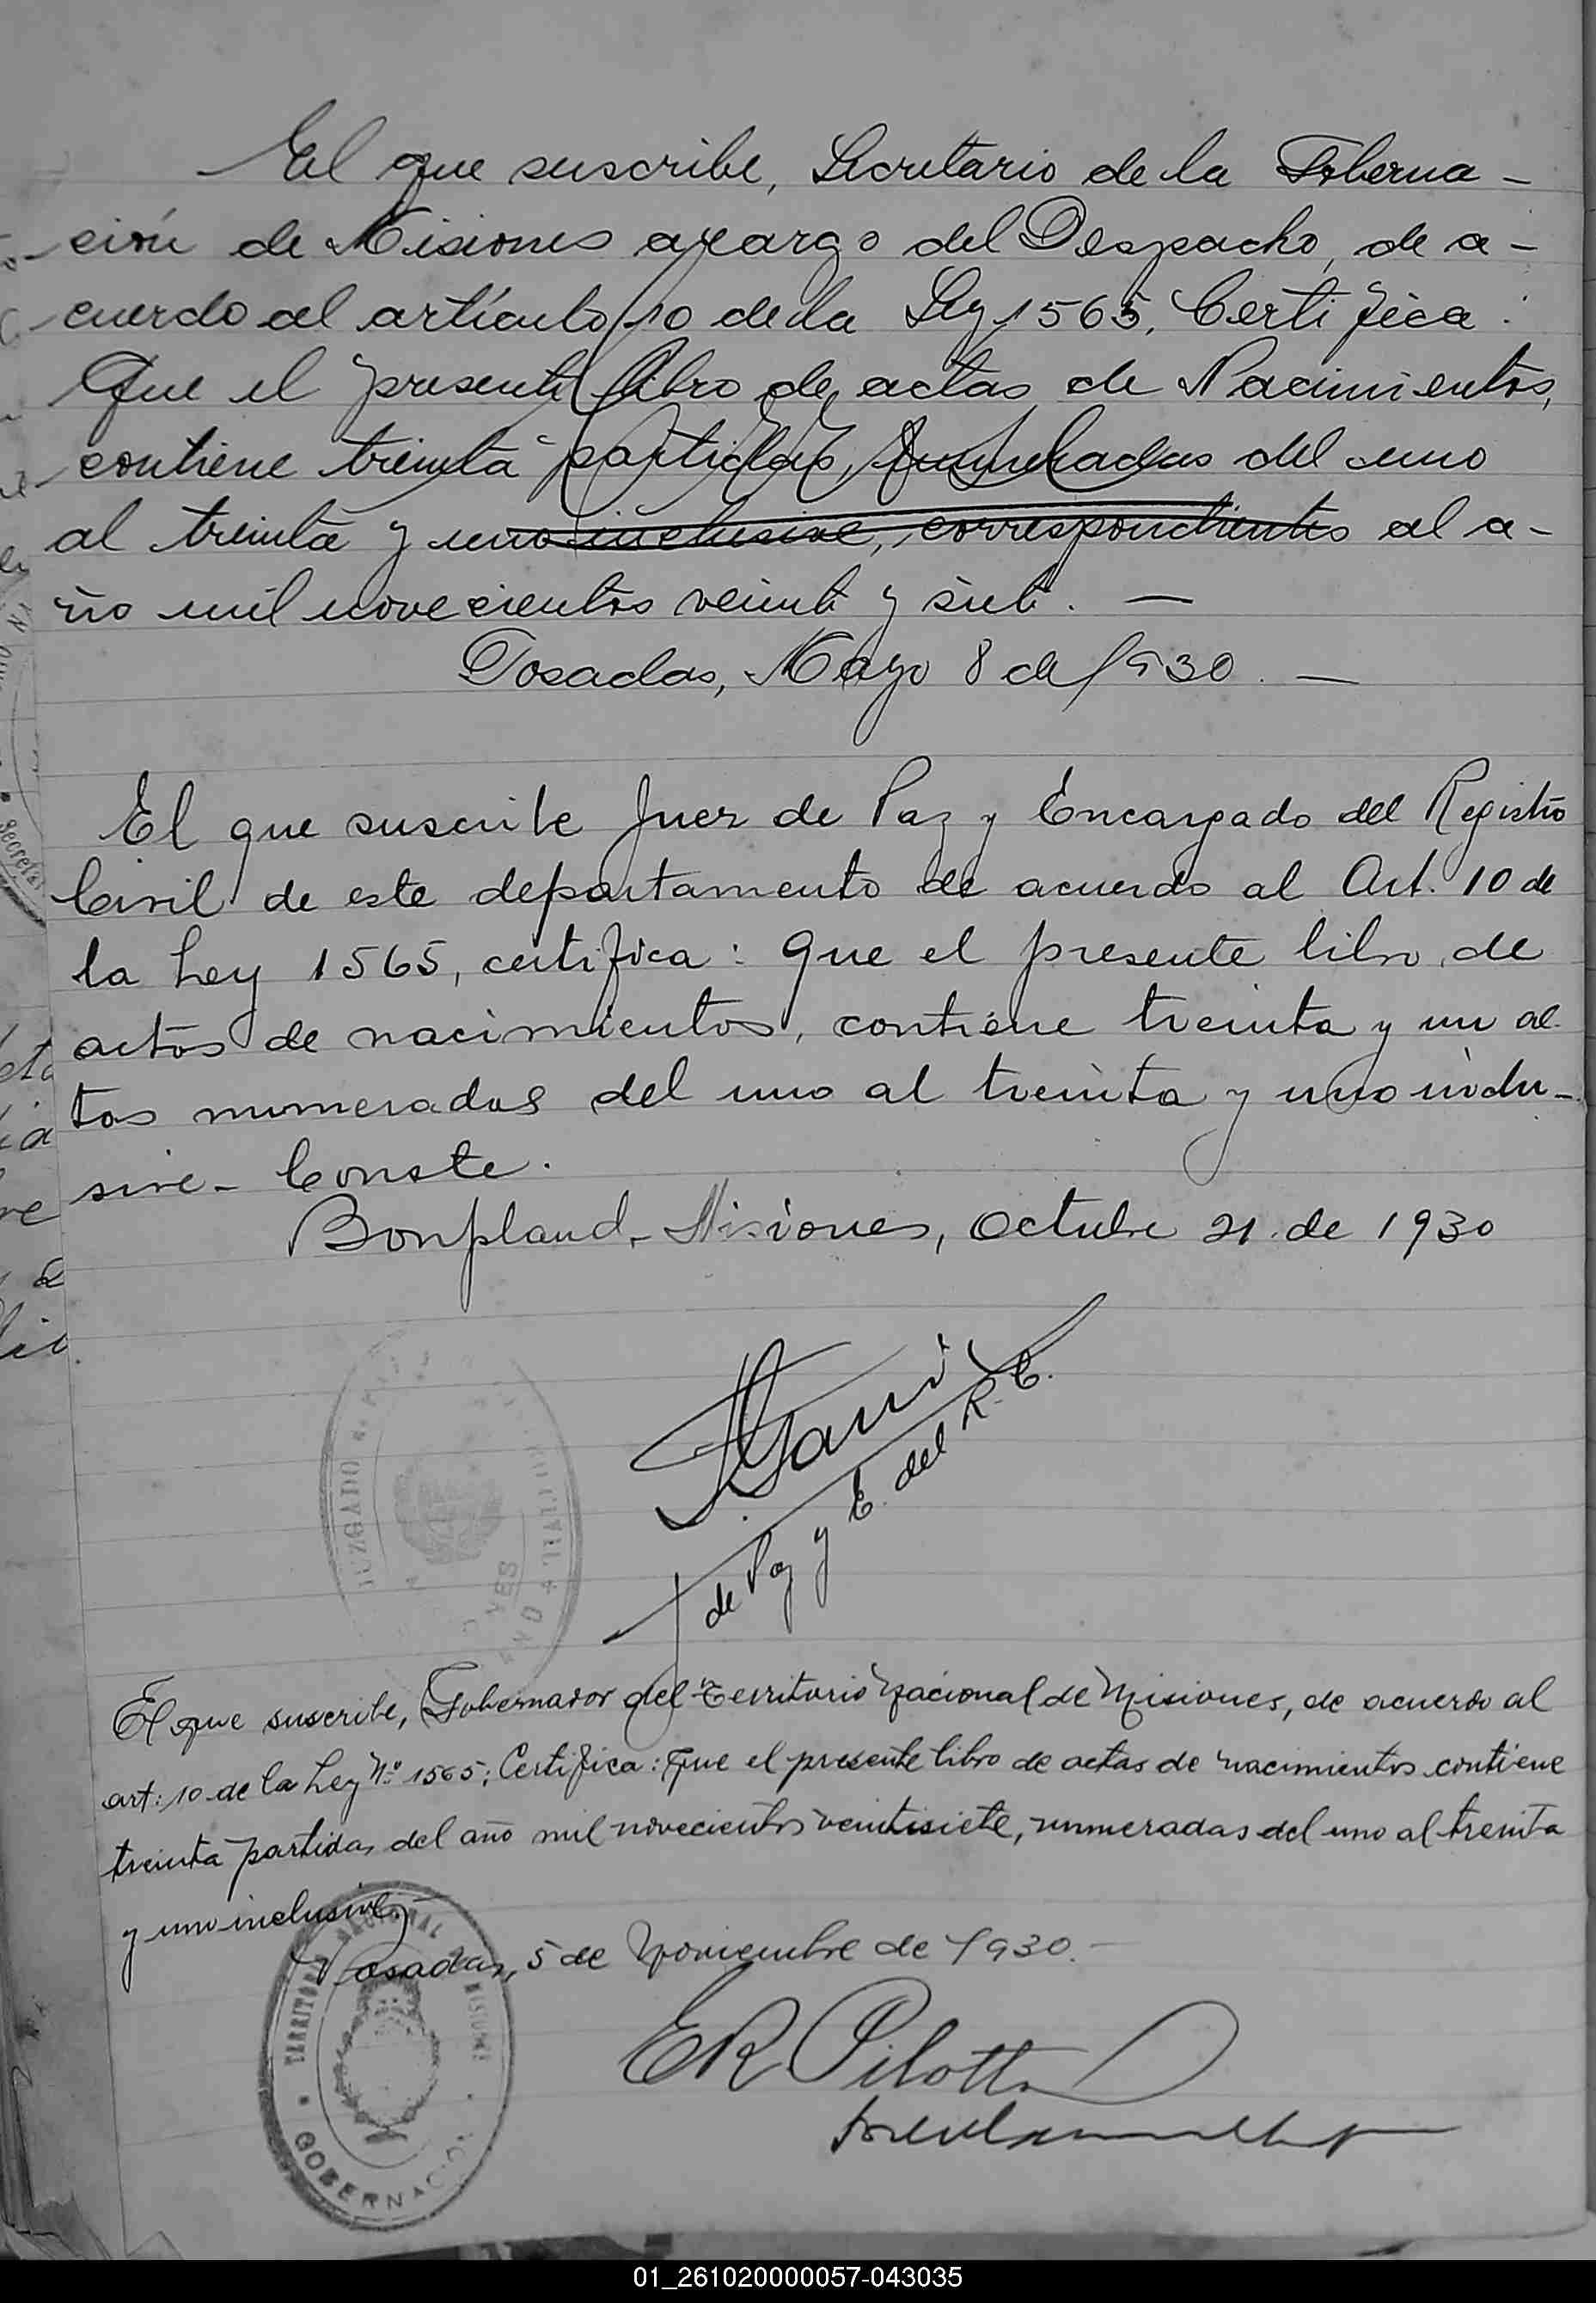 El que suscribe, Secretario de la Goberna-
ción de Misiones a cargo del Despacho, de a-
cuerdo al artículo 10 de la Ley 1565, Certifica:
Que el presente libro de actas de Nacimientos,
contiene treinta partidas, numeradas del uno
al treinta y uno inclusive, correspondientes al a-
ño mil novecientos veinte y siete. —
Posadas, Mayo 8 de 1930. —
El que suscribe Juez de Paz y Encargado del Registro
Civil de este departamento de acuerdo al Art. 10 de
la Ley 1565, certifica: que el presente libro de
actos de nacimientos, contiene treinta y un ac
tas numeradas del uno al treinta y uno inclu-
sive - Conste.
Bonpland - Misiones, Octubre 21 de 1930
JUZGADO
J. de Paz y E. del R. C.
El que suscribe, Gobernador del Territorio Nacional de Misiones, de acuerdo al
art: 10 de la Ley Nº 1565; Certifica: que el presente libro de actas de nacimientos contiene
treinta partidas del año mil novecientos veintisiete, numeradas del uno al treinta
y uno inclusive.-
Posadas, 5 de Noviembre de 1930.-
TERRITORIO NACIONAL MISIONES
GOBERNACION
ER Pilotto
01_261020000057-043035